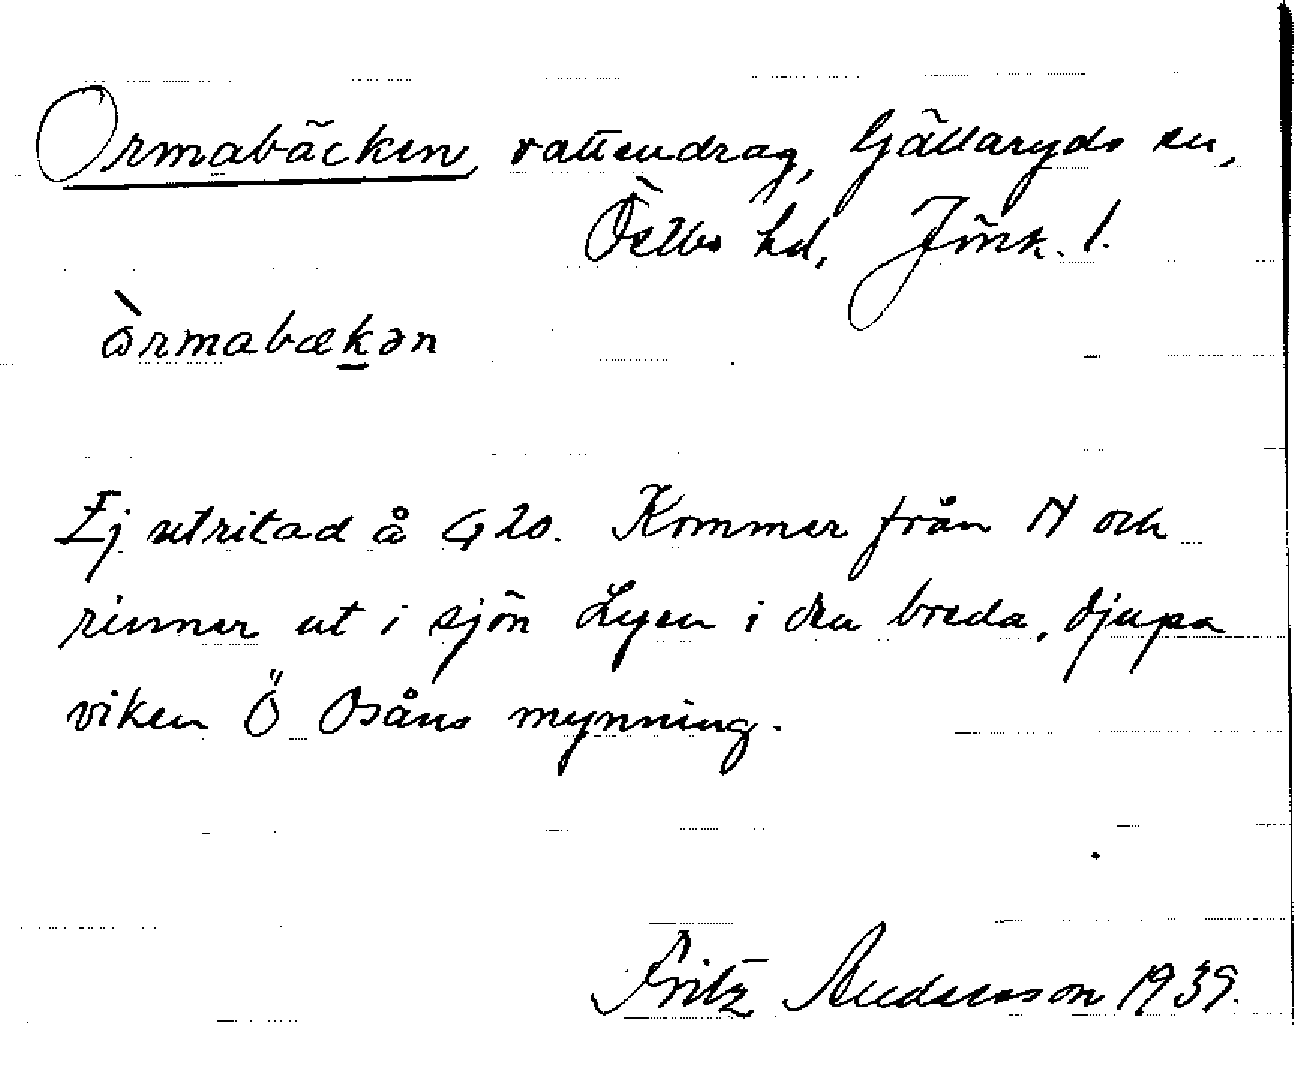 Ormabäcken, vattendrag, Gällaryds sn,
Östbo hd, Jönk. l.
òrmabækən
Ej utritad å G 20. Kommer från N och
rinner ut i sjön Lyen i den breda, djupa
viken Ö Osåns mynning.
Fritz Andersson 1939.